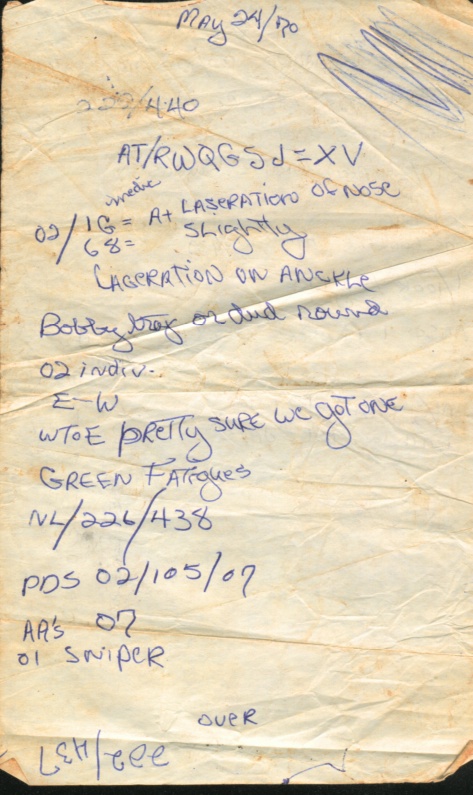 May 24/70
229/440
AT/RWQGSJ=XV
medic
02/1G= A+ LASERATION OF NOSE
68= SLIGHTLY
LACERATION ON ANCKLE
Bobby trap or dud round
02 indiv.
E-W
WTOE PRETTY SURE WE GOT ONE
GREEN FATGUES
NL/226/438
PDS 02/105/07
AA's 07
01 SNIPER
OVER